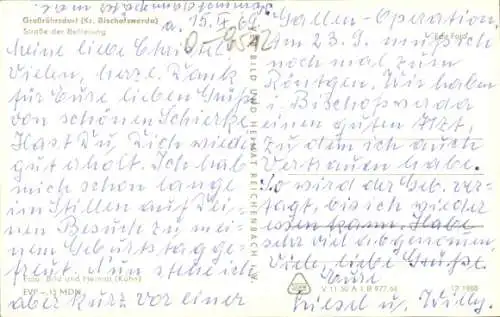 Großröhrsdorf (Kr. Bischofswerda)
Straße der Befreiung
a. 15. 9. 69
Meine liebe Christel!
Vielen, herzl. Dank
für Eure lieben Grüße
von schönen Schierke.
Hast Du Dich wieder
gut erholt. Ich hab
mich schon lange
im Stillen auf Dei-
nen Besuch zu mei-
nem Geburtstag ge-
freut. Nun stehe ich
aber kurz vor einer
Foto: Bild und Heimat (Kühn)
EVP –,15 MDN
BILD UND HEIMAT REICHENBACH i. V.
Gallen-Operation.
Am 23. 9. muß ich
nochmal zum
Röntgen. Wir haben
i. Bischofswerda
einen guten Arzt,
zu dem ich auch
Vertrauen habe.
So wird der Geb. ver-
tagt, bis ich wieder
essen kann. Habe
sehr viel abgenommen.
Viele, liebe Grüße
Eure
Liesel u. Willy.
V 11 50 A 1 B 977/68